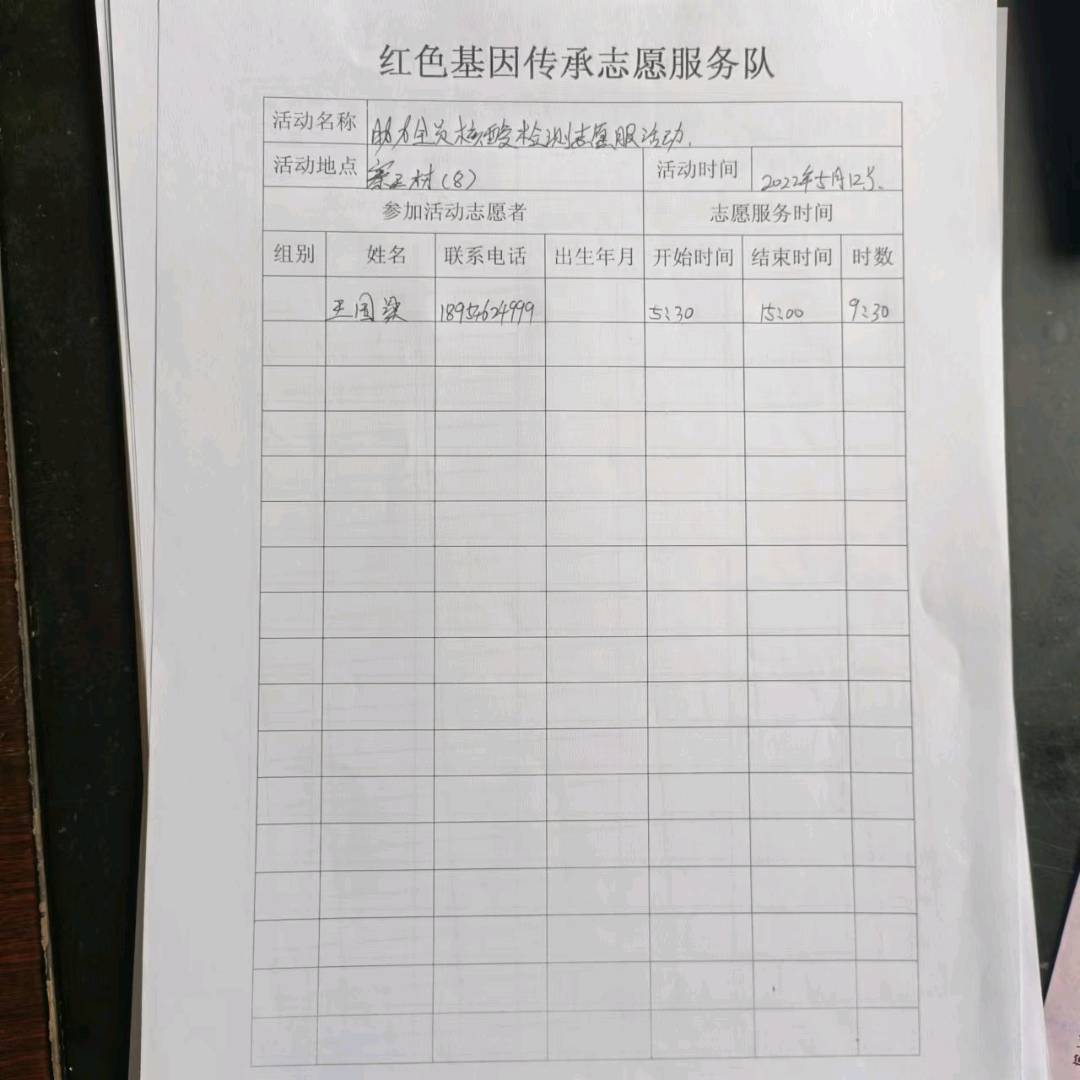 红色基因传承志愿服务队
活动名称 助力全员核酸检测志愿服活动.
活动地点 村(8) 活动时间 2022年5月12号.
参加活动志愿者 志愿服务时间
组别 姓名 联系电话 出生年月 开始时间 结束时间 时数
王国梁 18954624999 5:30 15:00 9:30